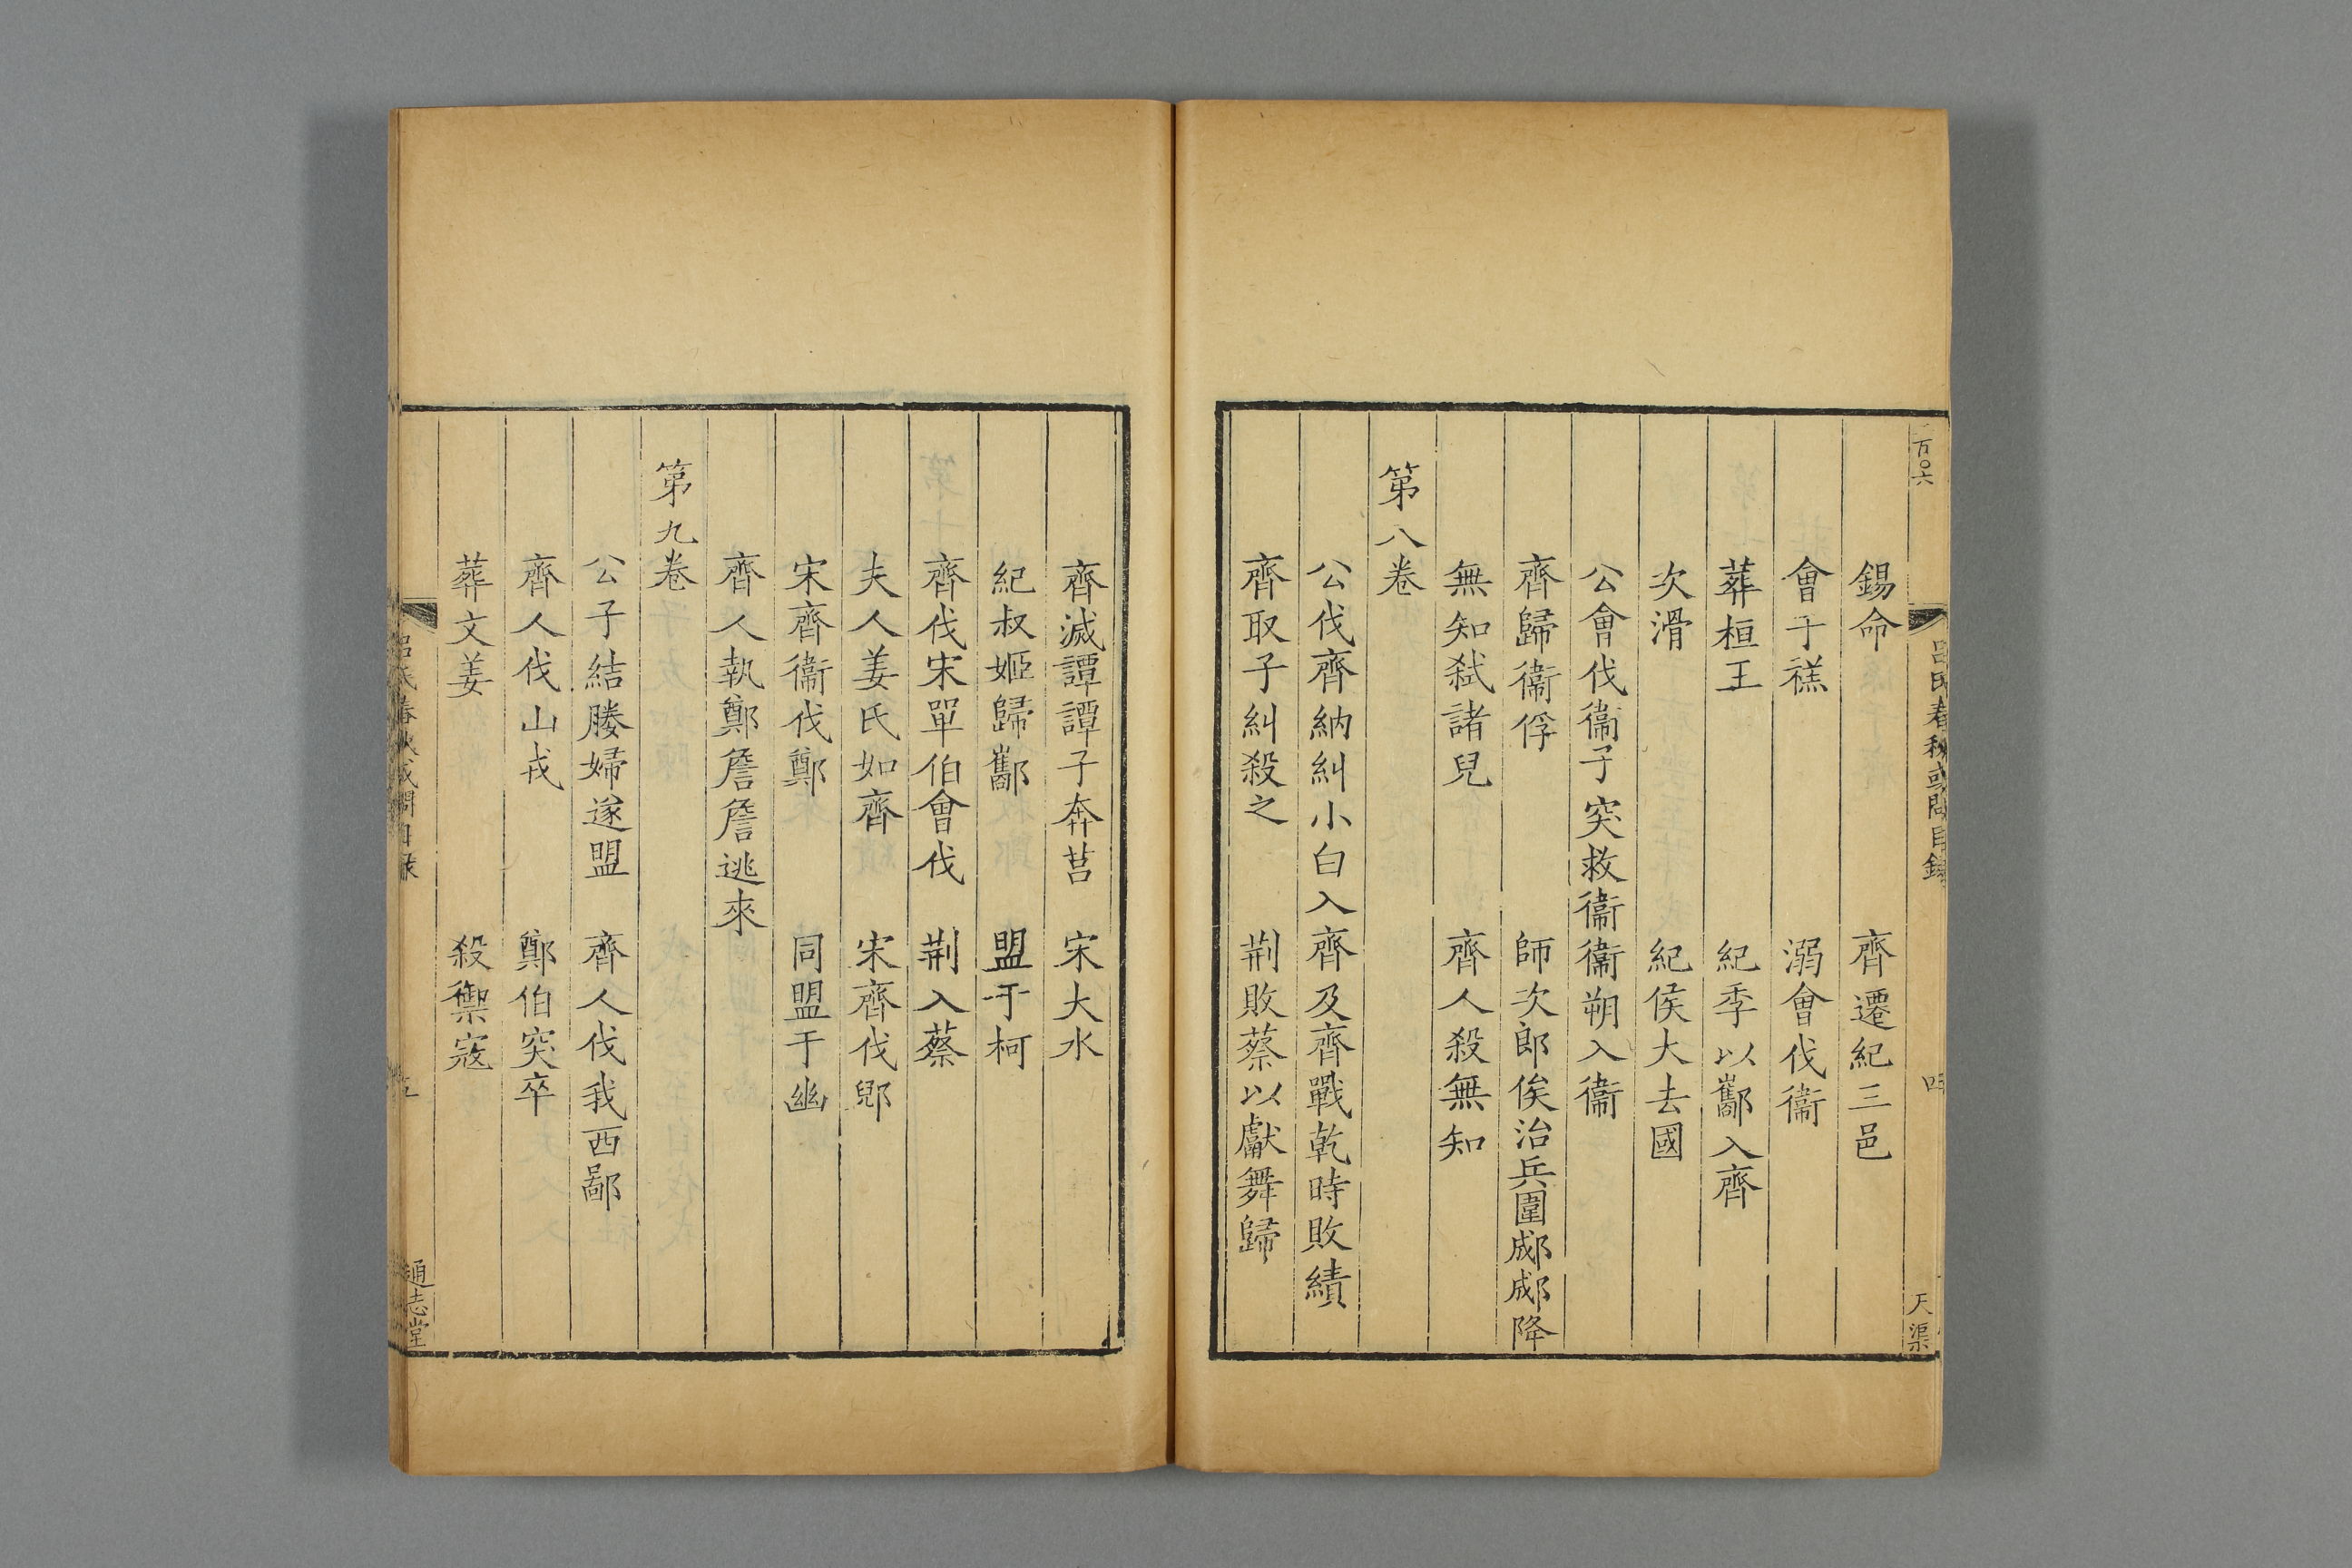 百〇六
呂氏春秋或問目錄
四
天渠
錫命 齊遷紀三邑
會于禚 溺會伐衞
葬桓王 紀季以酅入齊
次滑 紀侯大去國
公會伐衞子突救衞衞朔入衞
齊歸衞俘 師次郎俟治兵圍郕郕降
無知弑諸兒 齊人殺無知
第八卷
公伐齊納糾小白入齊及齊戰乾時敗績
齊取子糾殺之 荆敗蔡以獻舞歸
齊滅譚譚子奔莒 宋大水
紀叔姬歸酅 盟于柯
齊伐宋單伯會伐 荆入蔡
夫人姜氏如齊 宋齊伐郳
宋齊衞伐鄭 同盟于幽
齊人執鄭詹詹逃來
第九卷
公子結媵婦遂盟 齊人伐我西鄙
齊人伐山戎 鄭伯突卒
葬文姜 殺禦寇
呂氏春秋或問目錄
五
通志堂